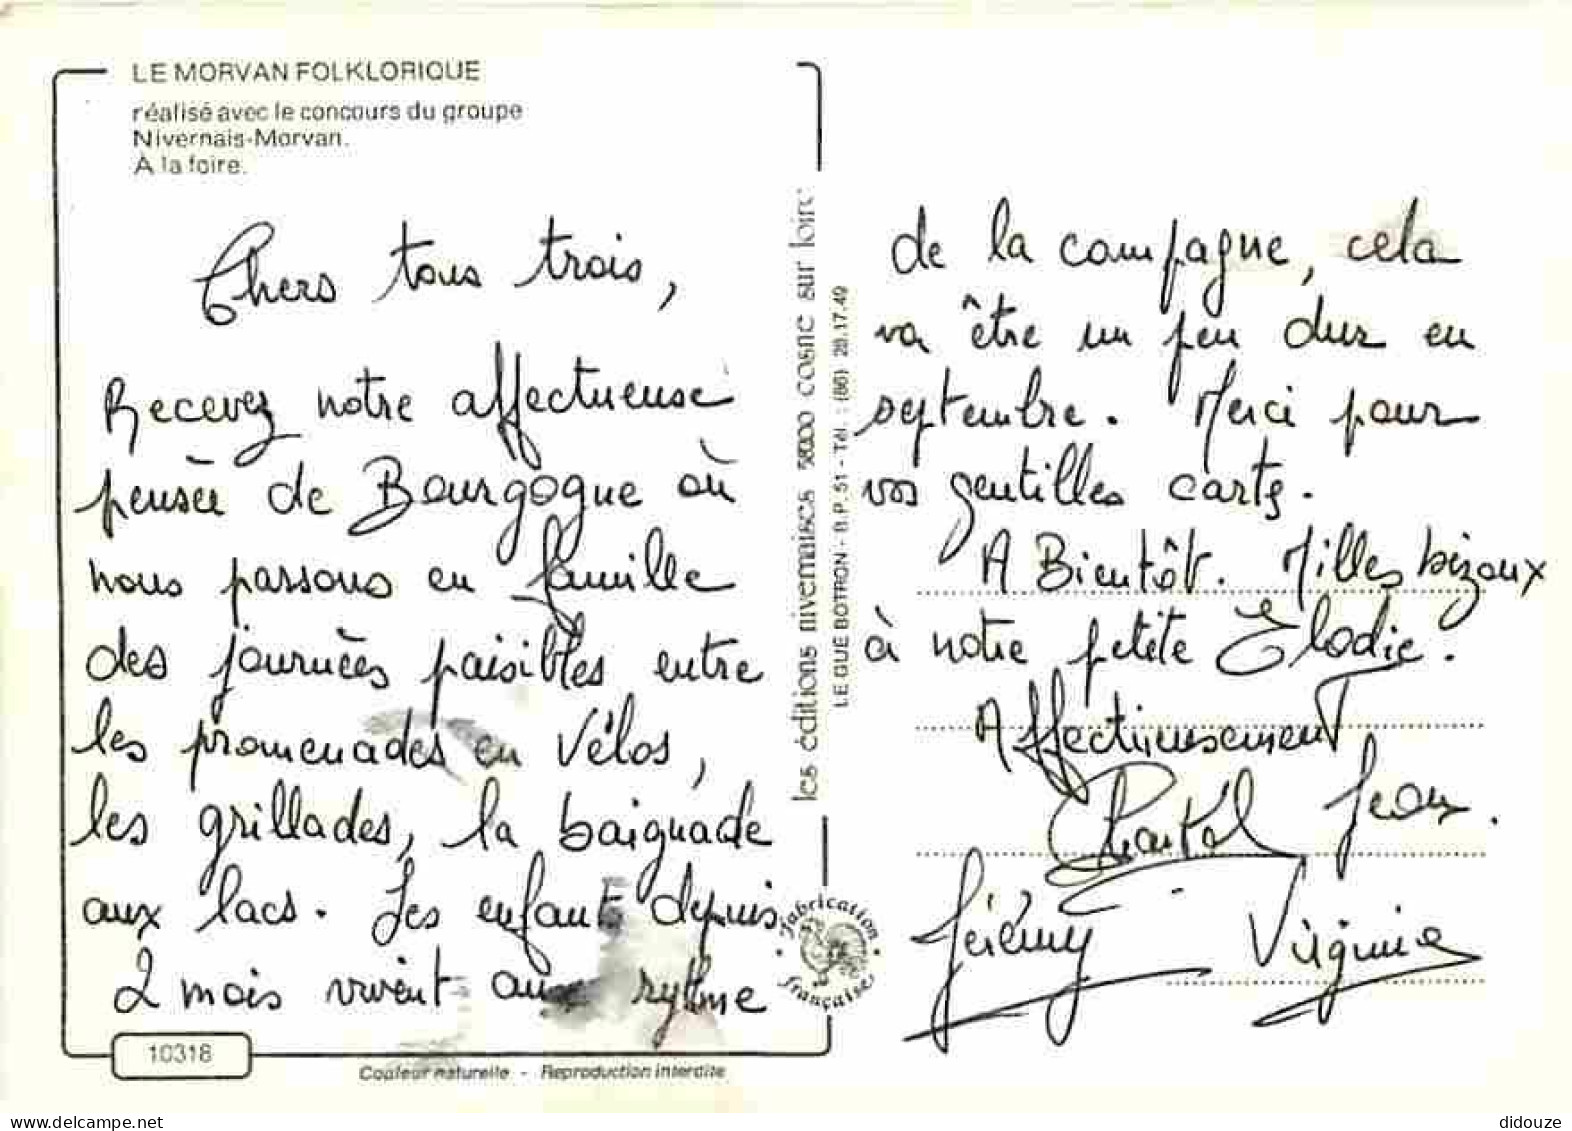 LE MORVAN FOLKLORIQUE
réalisé avec le concours du groupe
Nivernais-Morvan.
À la foire.
Chers tous trois,
Recevez notre affectueuse
pensée de Bourgogne où
nous passons en famille
des journées paisibles entre
les promenades en Vélos,
les grillades, la baignade
aux lacs. Les enfants depuis
2 mois vivent aux rytme
de la campagne, cela
va être un peu dur en
septembre. Merci pour
vos gentilles carts.
A Bientôt. Milles bizoux
à notre petite Elodie.
Affectueusement
Chantal Jean.
Jérémy Virginie
les éditions nivernaises 58200 cosne sur loire
LE GUE BOTRON - B.P. 51 - Tél. : (86) 28.17.49
Fabrication
française
10318
Couleur naturelle - Reproduction interdite
didouze